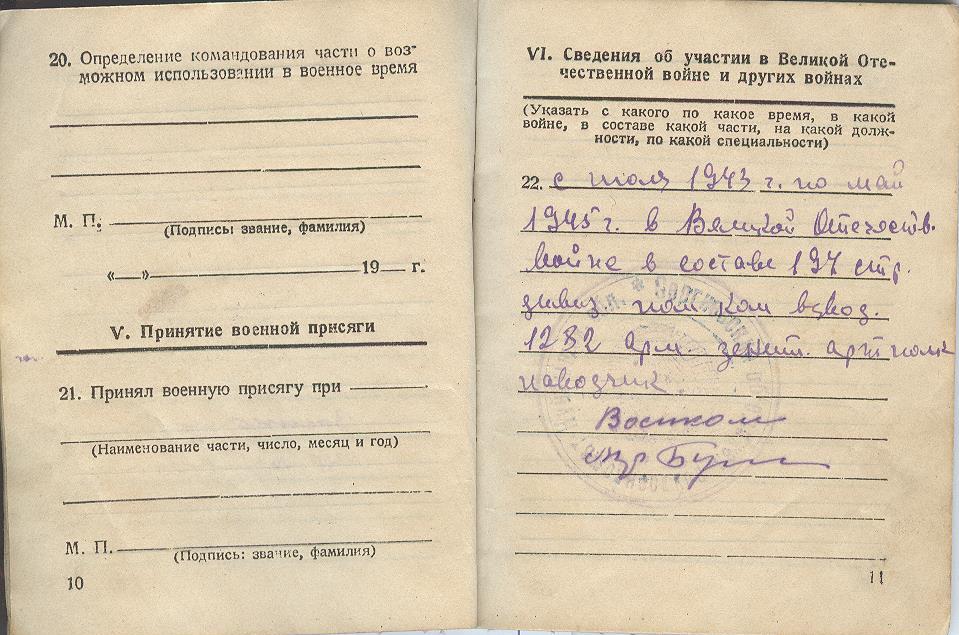 20. Определение командования части о воз-
можном использовании в военное время
М. П.
(Подпись: звание, фамилия)
«—» 19— г.
V. Принятие военной присяги
21. Принял военную присягу при
(Наименование части, число, месяц и год)
М. П.
(Подпись: звание, фамилия)
10
VI. Сведения об участии в Великой Оте-
чественной войне и других войнах
(Указать с какого по какое время, в какой
войне, в составе какой части, на какой долж-
ности, по какой специальности)
22. с июля 1943 г. по май
1945 г. в Великой Отечеств.
войне в составе 197 стр.
дивиз. пом ком взвод.
1282 арм зенит. артполк
наводчик.
Военком
11